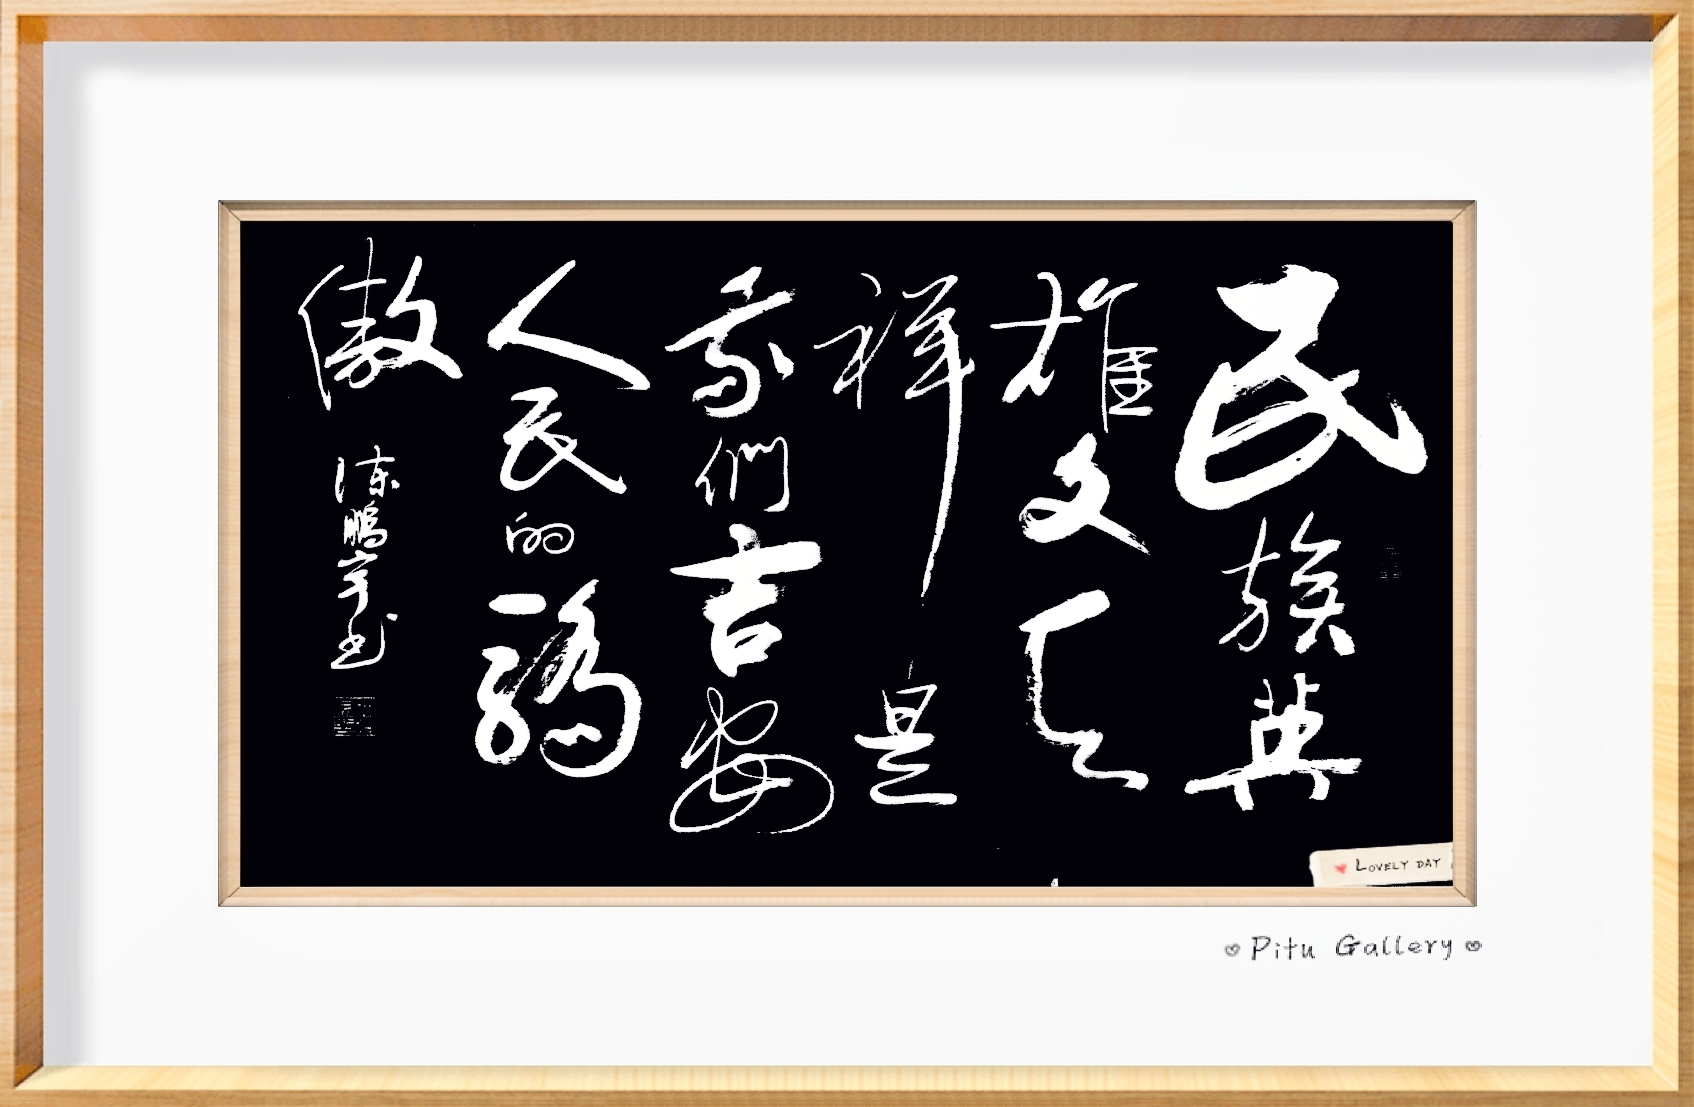 民族英
雄文天
祥是
我們吉安
人民的驕
傲
陳鵬宇书
LOVELY DAY
Pitu Gallery